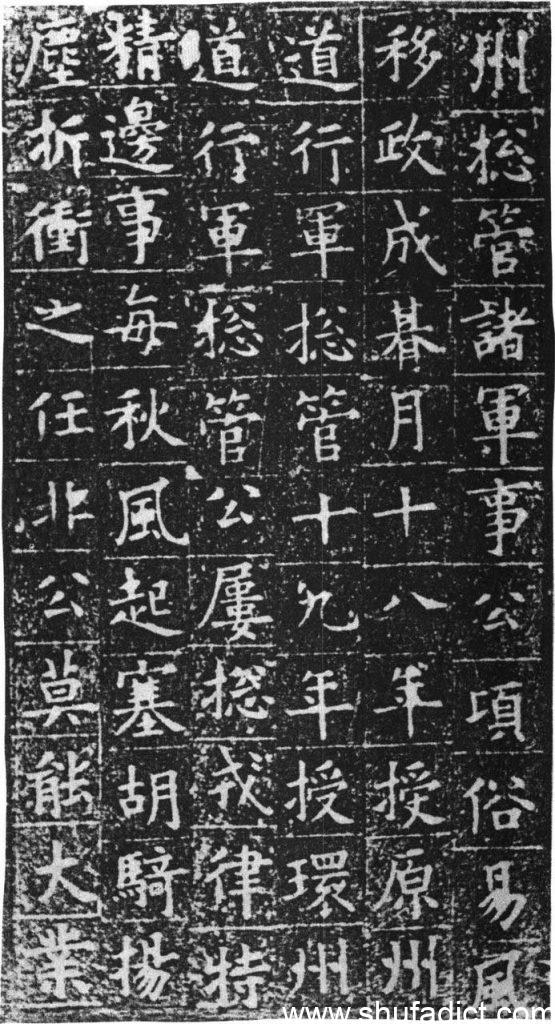 州揔管諸軍事公頃俗易風
移政成朞月十八年授原州
道行軍揔管十九年授環州
道行軍揔管公屢揔戎律特
精邊事每秋風起塞胡騎揚
塵折衝之任非公莫能大業
www.shufadict.com